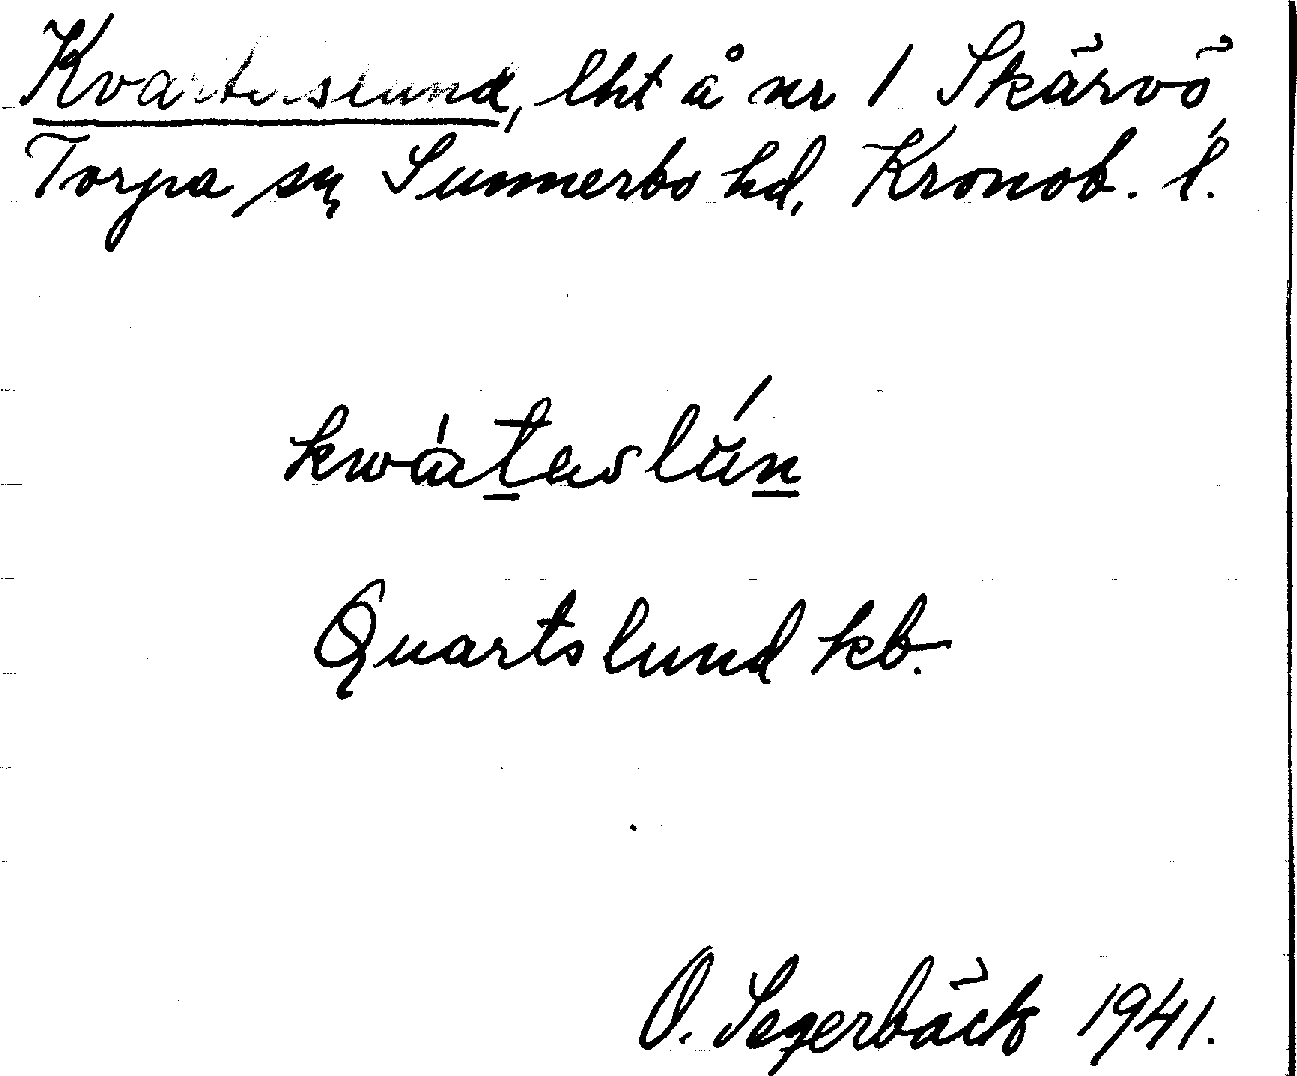 Kvarterslund, lht å nr 1 Skärvö,
Torpa sn, Sunnerbo hd, Kronob. l.
kwátaslún
Quartslund kb.
O. Segerbäck 1941.